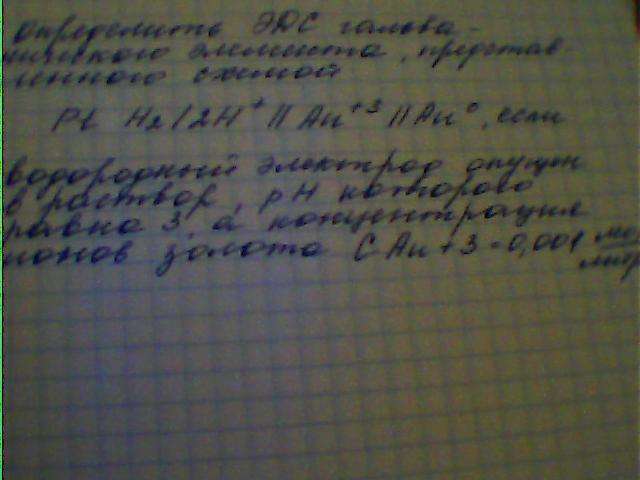 Определить ЭДС гальва-
нического элемента, представ-
ленного схемой
Pt H2/2H+ // Au+3 // Au0, если
водородный электрод опущен
в раствор, pH которого
равна 3, а концентрация
ионов золота C Au+3=0,001